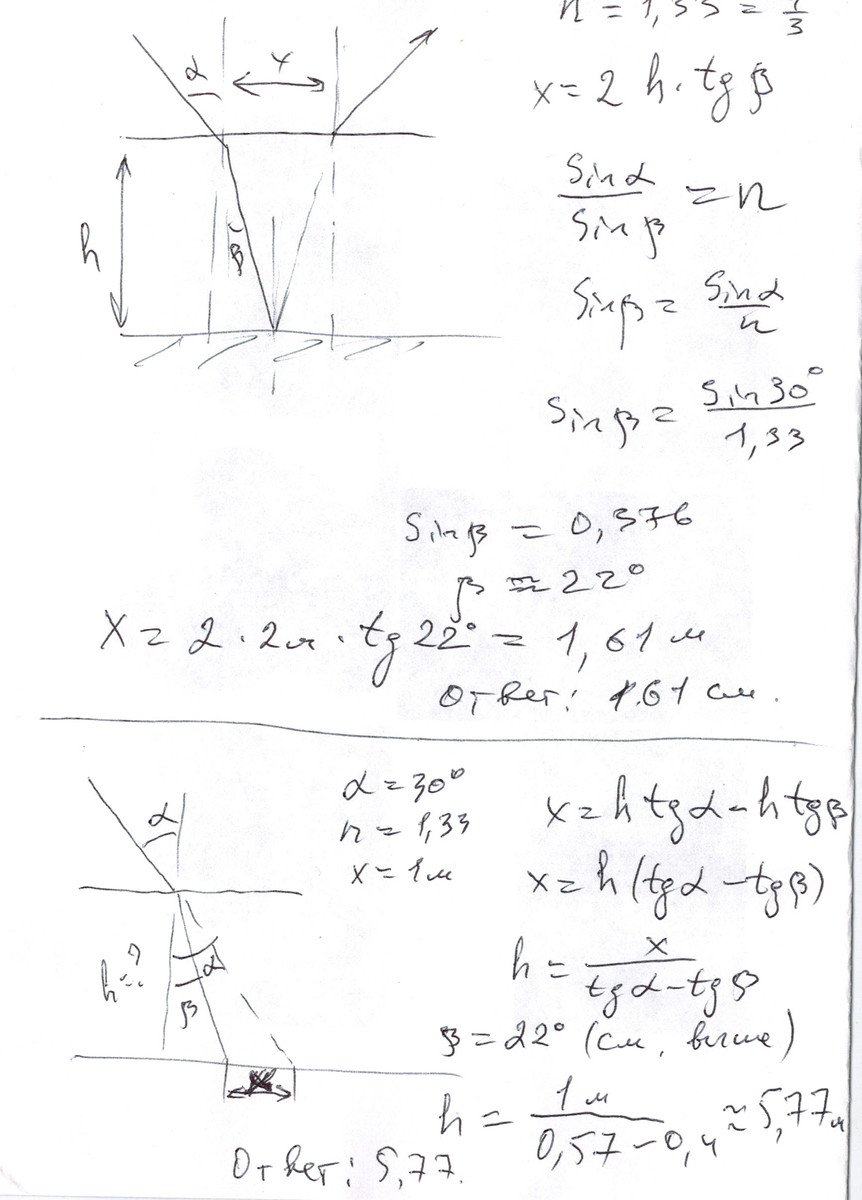 n = 1,33 = 4/3
α
x
x = 2 h · tg β
sin α / sin β = n
h
β
sin β = sin α / n
sin β = sin 30° / 1,33
sin β = 0,376
β ≈ 22°
x = 2 · 2м · tg 22° = 1,61 м
Ответ: 1.61 см.
α = 30°
n = 1,33
x = 1м
α
x = h tg α - h tg β
x = h (tg α - tg β)
h = ?
α
β
h = x / (tg α - tg β)
β = 22° (см. выше)
x
h = 1м / (0,57 - 0,4) ≈ 5,77м
Ответ: 5,77.